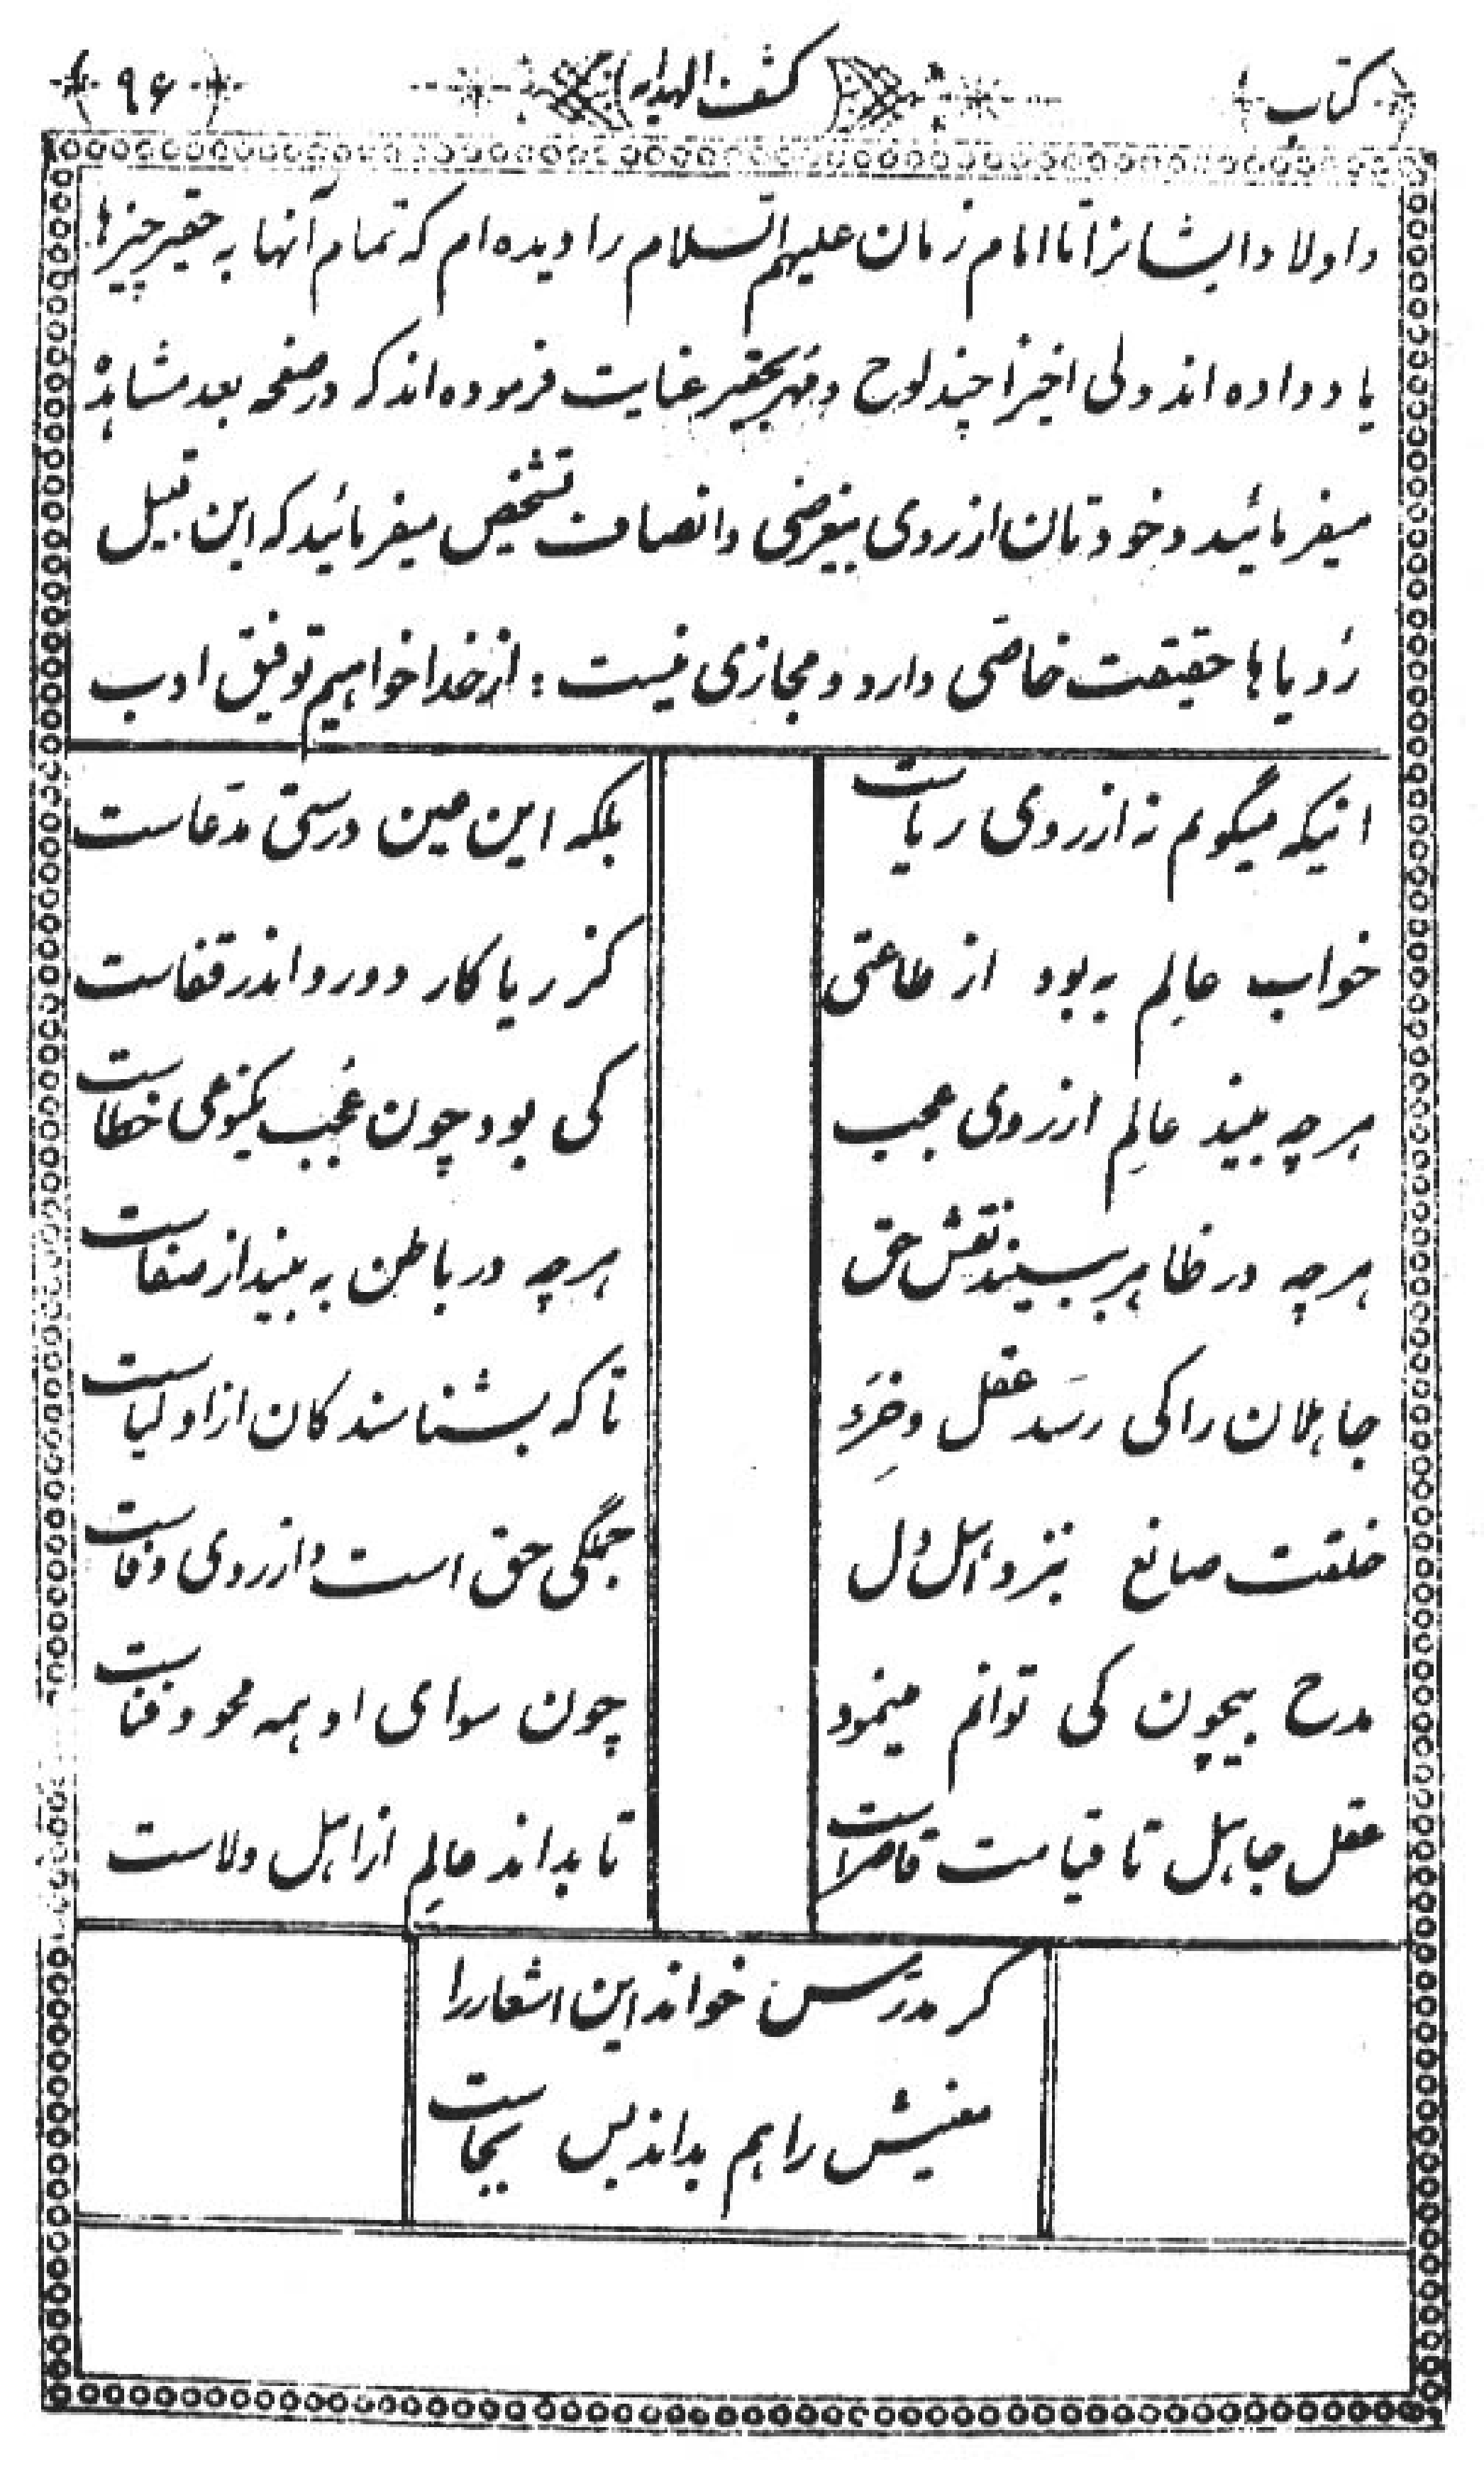 کتاب
کشف الهدایه
۹۶
و اولاد ایشانرا تا امام زمان علیهم السلام را دیده ام که تمام آنها به حقیر چیزها
یاد داده اند ولی اخیراً چند لوح و مُهر بحقیر عنایت فرموده اند که در صفحه بعد مشاهده
میفرمائید و خودتان از روی بیغرضی و انصاف تشخیص میفرمائید که این قبیل
رُؤیاها حقیقت خاصّی دارد و مجازی نیست : از خدا خواهیم توفیق ادب
اینکه میگویم نه از روی ریاست
بلکه این عین درستی مدّعاست
خواب عالِم به بود از طاعتی
کز ریا کار دورو اندر قفاست
هرچه بیند عالِم از روی عجب
کی بود چون عُجب یکنوعی خطاست
هرچه در ظاهر ببیند نقش حق
هرچه در باطن به بیند از صفاست
جاهلان را کی رسَد عقل و خِرَد
تا که بشناسند کان از اولیاست
خلقت صانع نزد اهل دل
جملگی حق است و از روی وفاست
مدح بیچون کی توانم مینمود
چون سوای او همه محو و فناست
عقل جاهل تا قیامت قاصراست
تا بداند عالِم از اهل ولاست
کر مدرّس خواند این اشعار را
معنیش را هم بداند بس بجاست